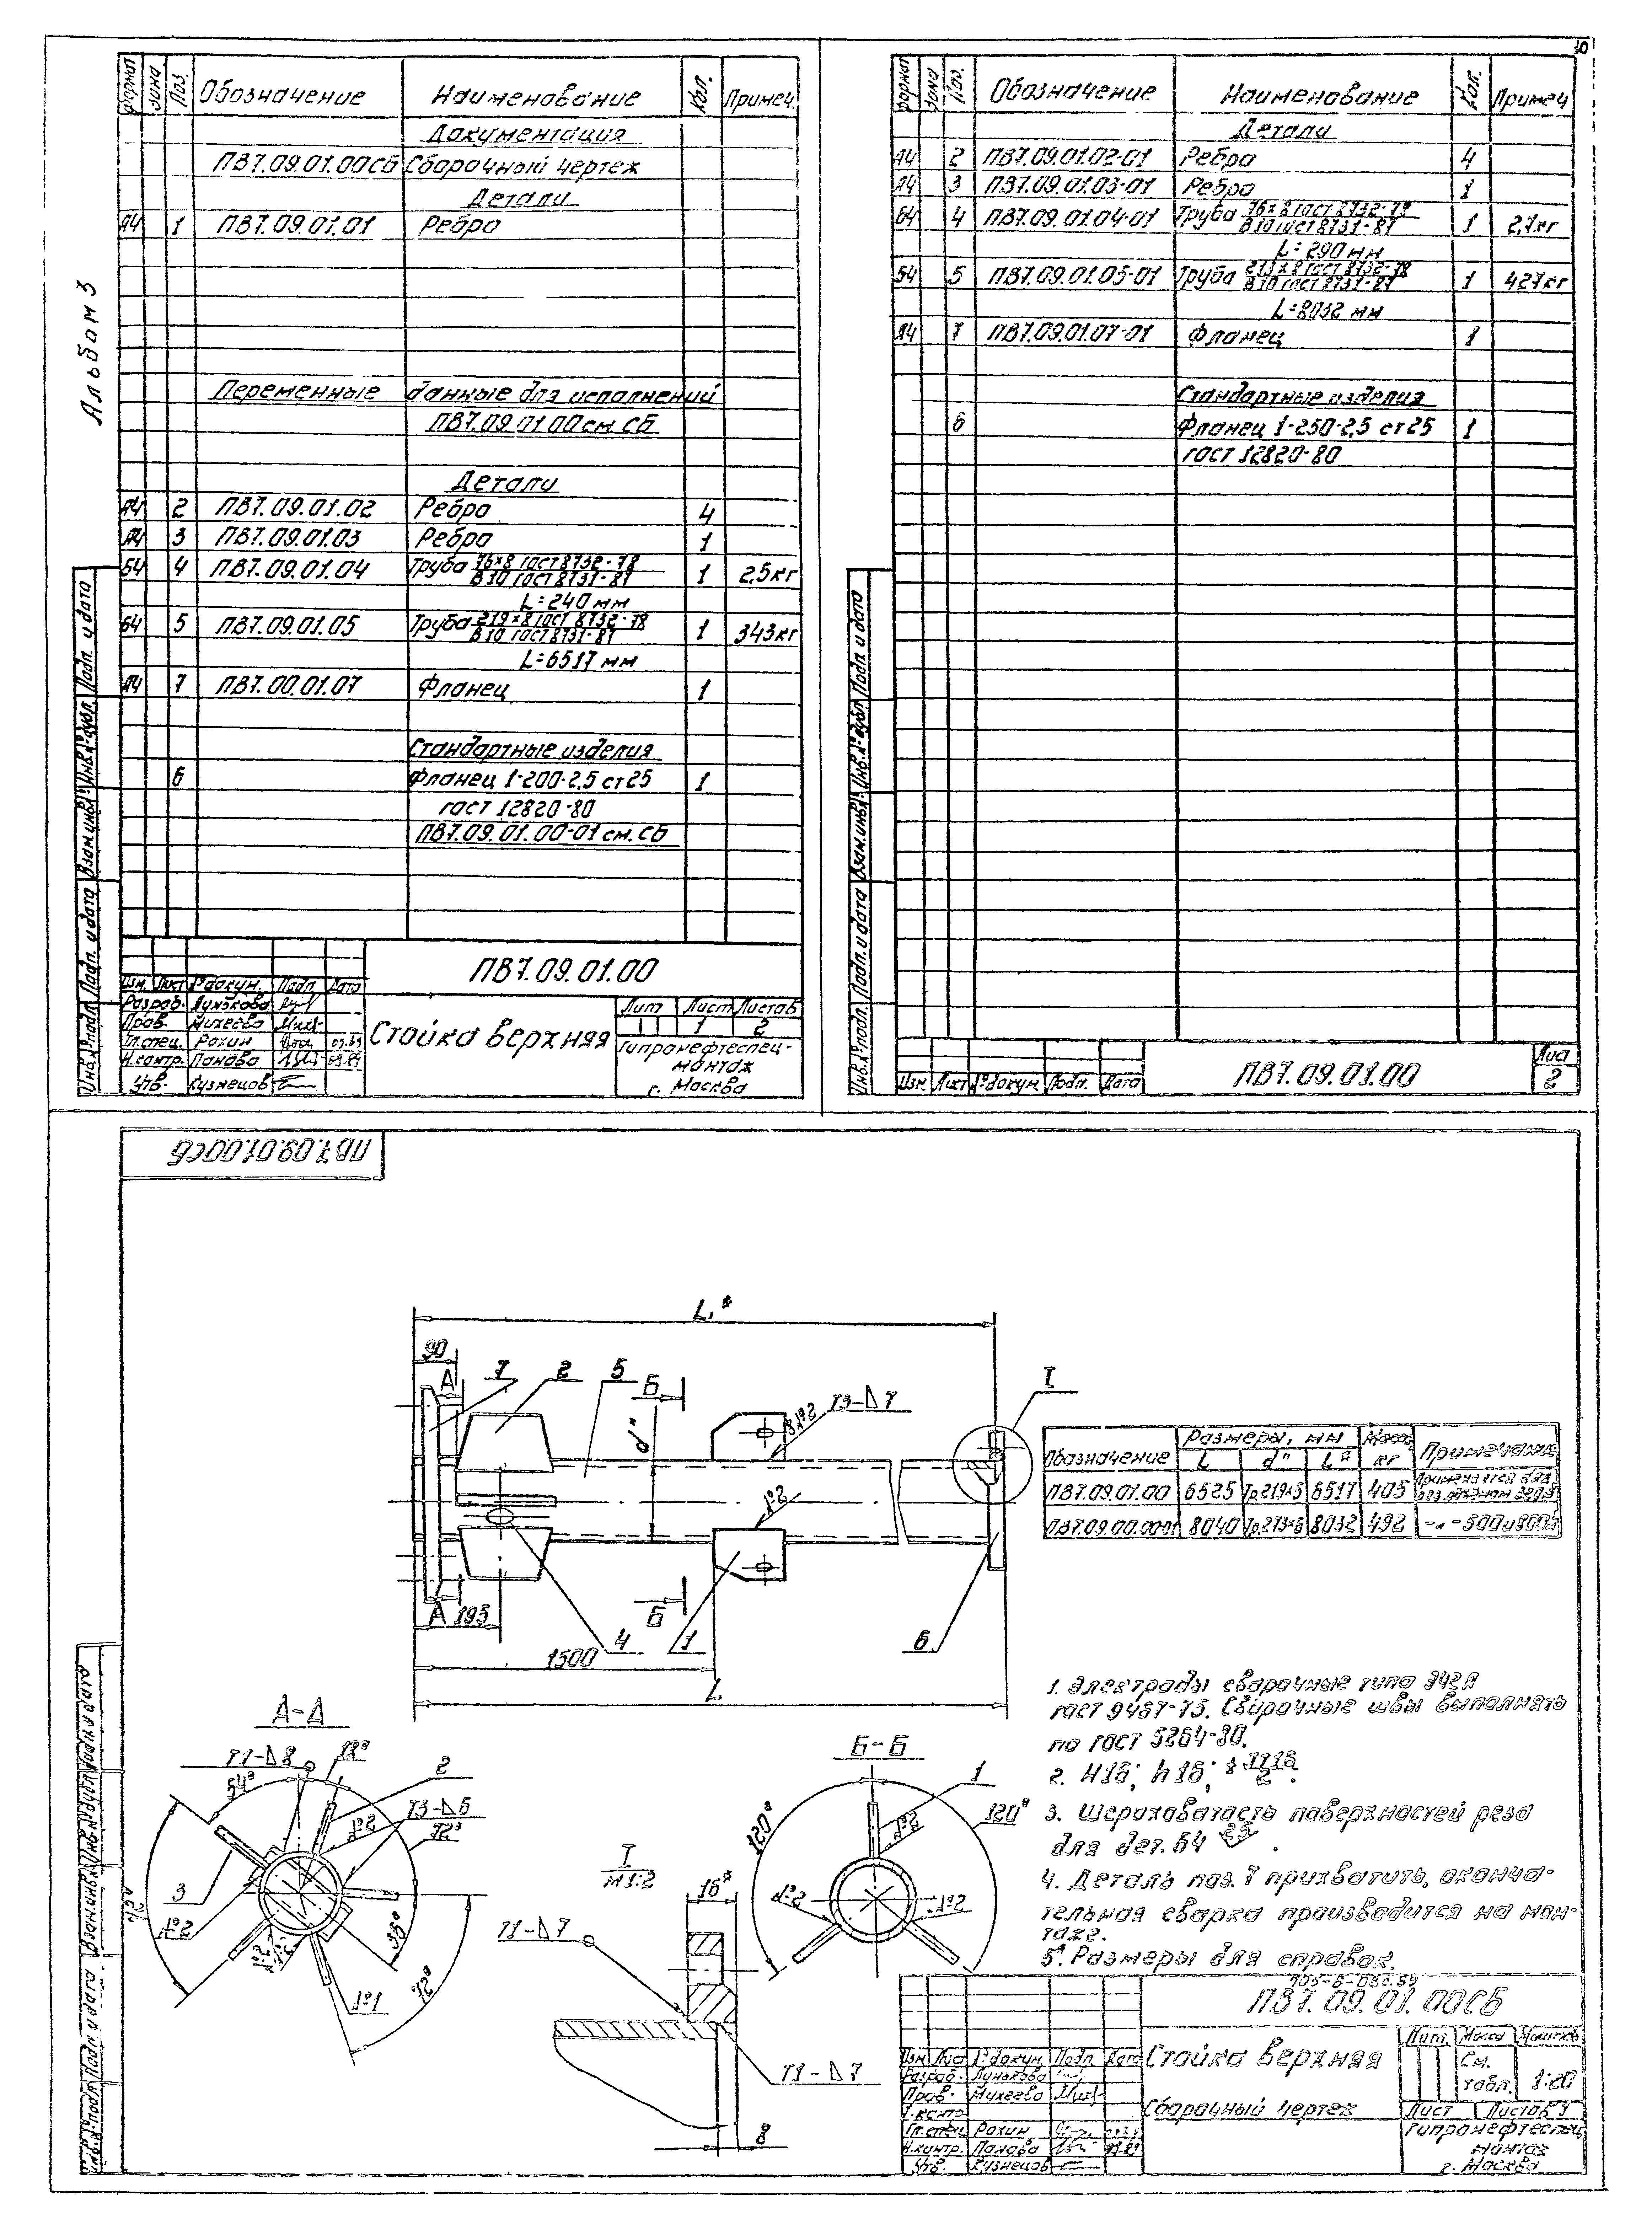 10
Альбом 3
Формат Зона Поз. Обозначение Наименование Кол. Примеч.
Документация
ПВ7.09.01.00СБ Сборочный чертеж
Детали
А4 1 ПВ7.09.01.01 Ребро
Переменные данные для исполнений
ПВ7.09.01.00 см. СБ
Детали
А4 2 ПВ7.09.01.02 Ребро 4
А4 3 ПВ7.09.01.03 Ребро 1
Б4 4 ПВ7.09.01.04 Труба 76×8 ГОСТ 8732-78 1 2,5кг
В10 ГОСТ 8731-87
L=240 мм
Б4 5 ПВ7.09.01.05 Труба 219×8 ГОСТ 8732-78 1 343кг
В10 ГОСТ 8731-87
L=6517 мм
А4 7 ПВ7.00.01.07 Фланец 1
Стандартные изделия
6 Фланец 1-200-2,5 ст25 1
ГОСТ 12820-80
ПВ7.09.01.00-01 см. СБ
Инв.№подл. Подп. и дата Взам.инв.№ Инв.№дубл. Подп. и дата
ПВ7.09.01.00
Изм. Лист №докум. Подп. Дата
Разраб. Лунькова
Пров. Михеева
Гл.спец. Рохин 09.89
Н.контр. Панова 09.89
Утв. Кузнецов
Стойка верхняя
Лит Лист Листов
1 2
Гипронефтеспец-
монтаж
г. Москва
Формат Зона Поз. Обозначение Наименование Кол. Примеч
Детали
А4 2 ПВ7.09.01.02-01 Ребро 4
А4 3 ПВ7.09.01.03-01 Ребро 1
Б4 4 ПВ7.09.01.04-01 Труба 76×8 ГОСТ 8732-78 1 2,7кг
В10 ГОСТ 8731-87
L=290 мм
Б4 5 ПВ7.09.01.05-01 Труба 273×8 ГОСТ 8732-78 1 427кг
В10 ГОСТ 8731-87
L=8032 мм
А4 7 ПВ7.09.01.07-01 Фланец 1
Стандартные изделия
6 Фланец 1-250-2,5 ст25 1
ГОСТ 12820-80
Инв.№подл. Подп. и дата Взам.инв.№ Инв.№дубл. Подп. и дата
Изм Лист №докум. Подп. Дата
ПВ7.09.01.00
Лист
2
ПВ7.09.01.00СБ
L₁*
90
А
7
2
5
Б
d*
№2
Т3-△7
I
№2
А
195
4
Б
1
6
1500
L
Обозначение Размеры, мм Масса Примечание
L d* L* кг
ПВ7.09.01.00 6525 Тр.219×8 6517 405
ПВ7.09.00.00-01 8040 Тр.273×8 8032 492
А-А
Т1-△8
54°
18°
2
Т3-△6
72°
№2
3
№2
36°
72°
№1
I
М1:2
16*
Т1-△7
Т1-△7
8
Б-Б
1
120°
120°
№2
№2
№2
1. Электроды сварочные типа Э42А
ГОСТ 9467-75. Сварочные швы выполнять
по ГОСТ 5264-80.
2. Н16; h16;
3. Шероховатость поверхностей реза
для дет. Б4
4. Деталь поз. 7 прихватить, оконча-
тельная сварка производится на мон-
таже.
5*. Размеры для справок.
ПВ7.09.01.00СБ
Изм Лист №докум. Подп. Дата
Разраб. Лунькова
Пров. Михеева
Т.контр.
Гл.спец Рохин
Н.контр. Панова
Утв. Кузнецов
Стойка верхняя
Сборочный чертеж
Лит. Масса Масштаб
См.
табл. 1:20
Лист Листов 1
Гипронефтеспец
монтаж
г. Москва
Инв.№подл. Подп. и дата Взам.инв.№ Инв.№дубл. Подп. и дата